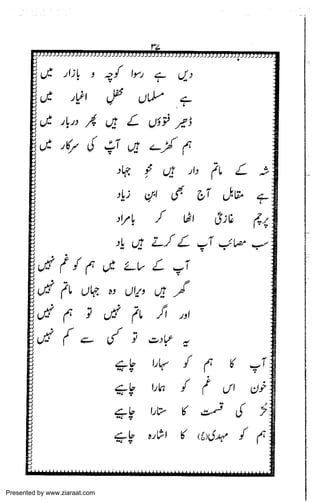 ۳۷
دیں ہے رسوا کوچہ و بازار میں
ہے مسلماں محفلِ اغیار میں
ڈھیر فتوؤں کے ہیں پھر دربار میں
ہم کھڑے ہیں آپؑ کی سرکار میں
شہ کے ماتم دار ہیں محوِ جہاد
ہے مقابل آج بھی ابنِ زیاد
پرچمِ غازیؑ اٹھا کر بامراد
سب مصائب آپ کے کرتے ہیں یاد
آپ کے سائے میں ہم کو غم نہیں
گھر ہیں ویراں وہ جہاں ماتم نہیں
اور اگر ماتم نہیں تو ہم نہیں
یہ عبادت تو کسی سے کم نہیں
آپ کا ہم کو سہارا چاہیے
خون اس غم کو ہمارا چاہیے
حُر کی قسمت کا ستارا چاہیے
ہم کو مہدی(ع) کا اشارہ چاہیے
Presented by www.ziaraat.com